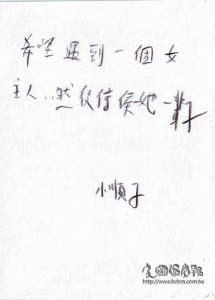 希望遇到一個女
主人..然後信侯她一輩子
小順子
http://www.bdsm.com.tw